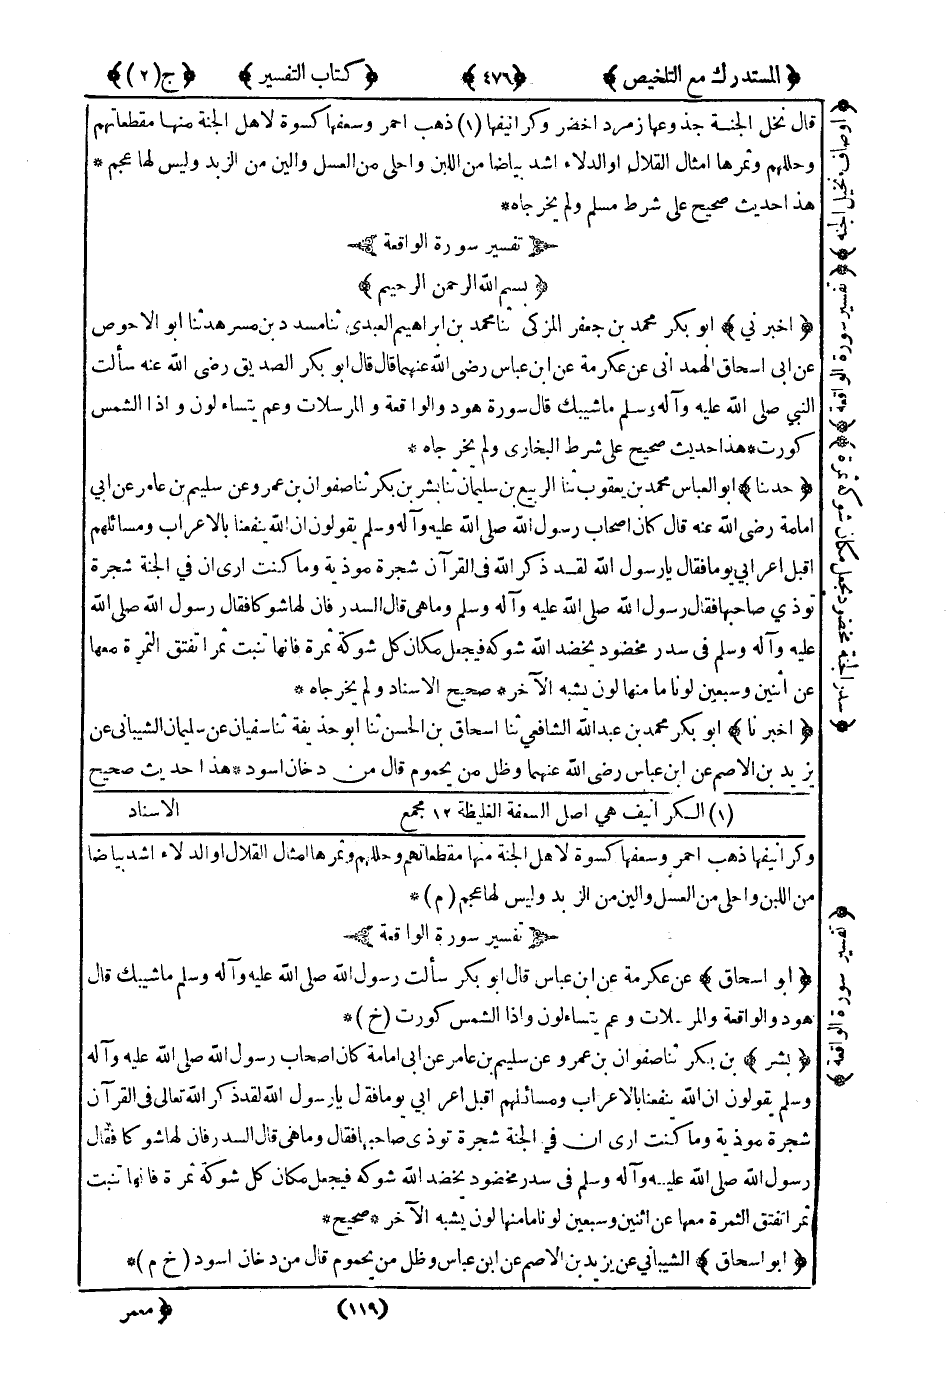 ﴿ المستدرك مع التلخيص ﴾ ﴿٤٧٦﴾ ﴿ كتاب التفسير ﴾ ﴿ ج(٢) ﴾
قال نخل الجنة جذوعها زمرد اخضر وكرانيفها (١) ذهب احمر وسعفها كسوة لاهل الجنة منها مقطعاتهم
وحللهم وثمرها امثال القلال او الدلاء اشد بياضا من اللبن واحلى من العسل والين من الزبد وليس لها عجم *
هذا حديث صحيح على شرط مسلم ولم يخرجاه*
تفسير سورة الواقعة
﴿ بسم الله الرحمن الرحيم ﴾
﴿ اخبرني ﴾ ابو بكر محمد بن جعفر المزكى ثنا محمد بن ابراهيم العبدى ثنا مسدد بن مسرهد ثنا ابو الاحوص
عن ابى اسحاق الهمدانى عن عكرمة عن ابن عباس رضى الله عنهما قال قال ابو بكر الصديق رضى الله عنه سألت
النبي صلى الله عليه وآله وسلم ماشيبك قال سورة هود والواقعة والمرسلات وعم يتساءلون واذا الشمس
كورت*هذا حديث صحيح على شرط البخارى ولم يخرجاه *
﴿ حدثنا ﴾ ابو العباس محمد بن يعقوب ثنا الربيع بن سليمان ثنا بشر بن بكر ثنا صفوان بن عمرو عن سليم بن عامر عن ابي
امامة رضى الله عنه قال كان اصحاب رسول الله صلى الله عليه وآله وسلم يقولون ان الله ينفعنا بالاعراب ومسائلهم
اقبل اعرابي يوما فقال يارسول الله لقد ذكر الله فى القرآن شجرة موذية وما كنت ارى ان في الجنة شجرة
توذي صاحبها فقال رسول الله صلى الله عليه وآله وسلم وماهى قال السدر فان لها شوكا فقال رسول الله صلى الله
عليه وآله وسلم فى سدر مخضود يخضد الله شوكه فيجعل مكان كل شوكة ثمرة فانها تنبت ثمرا تفتق الثمرة معها
عن أثنين وسبعين لونا ما منها لون يشبه الآخر* صحيح الاسناد ولم يخرجاه *
﴿ اخبرنا ﴾ ابو بكر محمد بن عبدالله الشافعي ثنا اسحاق بن الحسن ثنا ابو حذيفة ثنا سفيان عن سليمان الشيبانى عن
يزيد بن الاصم عن ابن عباس رضى الله عنهما وظل من يحموم قال من دخان اسود*هذا حديث صحيح
(١) الكرانيف هي اصل السعفة الغليظة ١٢ مجمع الاسناد
وكرانيفها ذهب احمر وسعفها كسوة لاهل الجنة منها مقطعاتهم وحللهم وثمرها امثال القلال او الدلاء اشد بياضا
من اللبن واحلى من العسل والين من الزبد وليس لها عجم (م) *
تفسير سورة الواقعة
﴿ ابو اسحاق ﴾ عن عكرمة عن ابن عباس قال ابو بكر سألت رسول الله صلى الله عليه وآله وسلم ماشيبك قال
هود والواقعة والمرسلات وعم يتساءلون واذا الشمس كورت (خ)*
﴿ بشر ﴾ بن بكر ثنا صفوان بن عمرو عن سليم بن عامر عن ابى امامة كان اصحاب رسول الله صلى الله عليه وآله
وسلم يقولون ان الله ينفعنا بالاعراب ومسائلهم اقبل اعرابي يوما فقال يارسول الله لقد ذكر الله تعالى فى القرآن
شجرة موذية وما كنت ارى ان في الجنة شجرة توذى صاحبها فقال وماهى قال السدر فان لها شوكا فقال
رسول الله صلى الله عليه وآله وسلم فى سدر مخضود يخضد الله شوكه فيجعل مكان كل شوكة ثمرة فانها تنبت
ثمرا تفتق الثمرة معها عن اثنين وسبعين لونا مامنها لون يشبه الآخر *صحيح*
﴿ ابو اسحاق ﴾ الشيباني عن يزيد بن الاصم عن ابن عباس وظل من يحموم قال من دخان اسود (خ م)*
(١١٩) ﴿ معمر
﴿ اوصاف نخيل الجنة ﴾ ﴿ تفسير سورة الواقعة ﴾ ﴿ سدر الجنة مخضود يجعل مكان شوكه ثمرة ﴾
﴿ تفسير سورة الواقعة ﴾